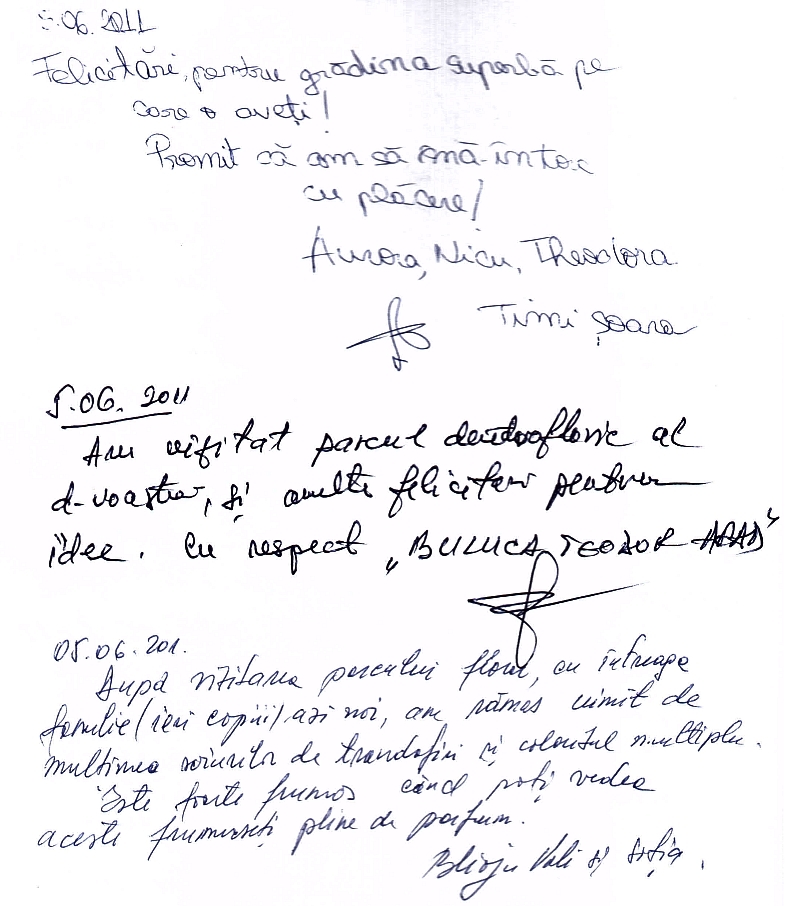 5.06.2011
Felicitări, pentru grădina superbă pe
care o aveți!
Promit că am să mă-întorc
cu plăcere!
Aurora, Nicu, Theodora
Timișoara
5.06.2011
Am vizitat parcul dendrofloric al
d-voastră, și multe felicitări pentru
idee. Cu respect „BULUCA TEODOR ARAD”
05.06.201.
După vizitarea parcului floral, cu întreaga
familie (ieri copiii) azi noi, am rămas uimit de
mulțimea soiurilor de trandafiri și coloritul multiplu.
Este foarte frumos când poți vedea
aceste frumuseți pline de parfum.
Vali și Sofia.